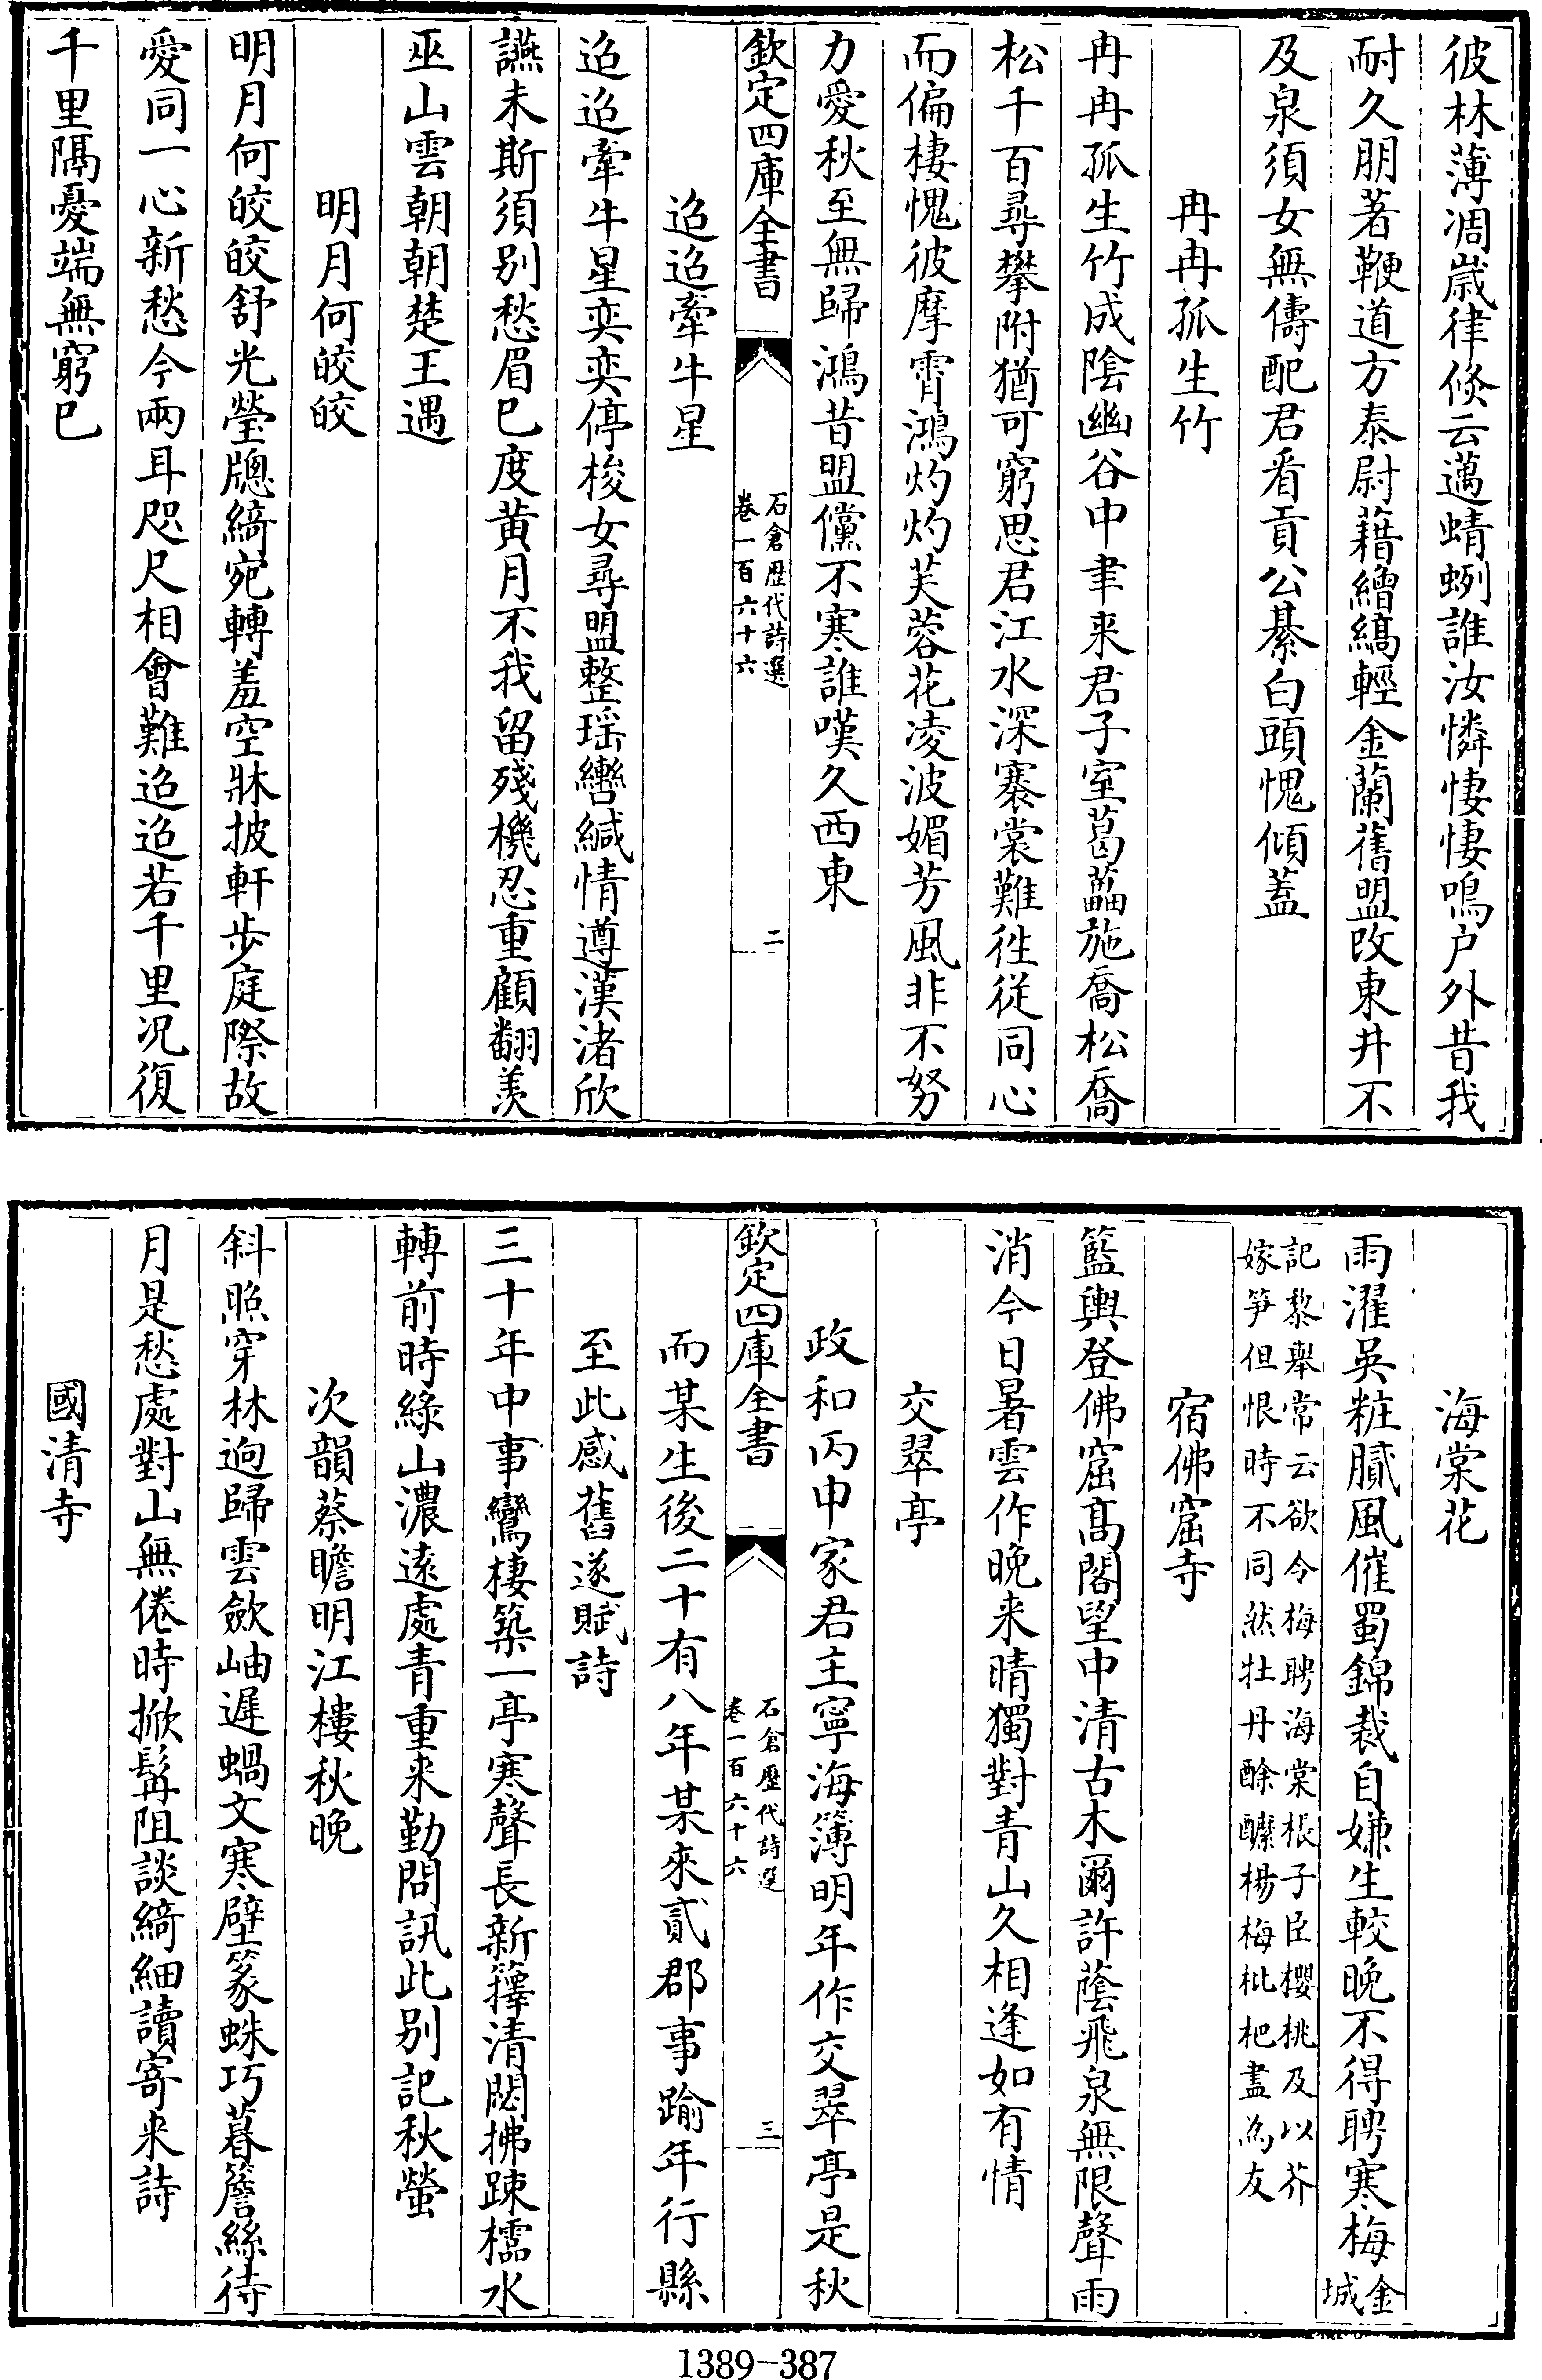 彼林薄凋歳律倐云邁蜻蛚誰汝憐悽悽鳴户外昔我
耐久朋著鞭道方泰尉藉繒縞輕金蘭舊盟改東井不
及泉須女無儔配君看貢公綦白頭愧傾蓋
冉冉孤生竹
冉冉孤生竹成陰幽谷中聿来君子室葛藟施喬松喬
松千百尋攀附猶可窮思君江水深褰裳難徃從同心
而偏棲愧彼摩霄鴻灼灼芙蓉花凌波媚芳風非不努
力愛秋至無歸鴻昔盟儻不寒誰嘆久西東
欽定四庫全書
石倉歴代詩選
卷一百六十六
二
迢迢牽牛星
迢迢牽牛星奕奕停梭女尋盟整瑶轡緘情遵漢渚欣
讌未斯須别愁眉已度黄月不我留殘機忍重顧翻羨
巫山雲朝朝楚王遇
明月何皎皎
明月何皎皎舒光瑩牕綺宛轉羞空牀披軒步庭際故
愛同一心新愁今兩耳咫尺相㑹難迢迢若千里况復
千里隔憂端無窮已
海棠花
雨濯吳粧膩風催蜀錦裁自嫌生較晚不得聘寒梅金
城
記黎舉常云欲令梅聘海棠棖子臣櫻桃及以芥
嫁笋但恨時不同然牡丹酴醾楊梅枇杷盡為友
宿佛窟寺
籃輿登佛窟髙閣望中清古木爾許蔭飛泉無限聲雨
消今日暑雲作晚来晴獨對青山久相逢如有情
交翠亭
政和丙申家君主寧海簿明年作交翠亭是秋
而某生後二十有八年某來貳郡事踰年行縣
至此感舊遂賦詩
欽定四庫全書
石倉歴代詩選
卷一百六十六
三
三十年中事鸞棲築一亭寒聲長新籜清閟拂踈櫺水
轉前時緑山濃遠處青重来勤問訊此别記秋螢
次韻蔡瞻明江樓秋晚
斜照穿林逈歸雲歛岫遲蝸文寒壁篆蛛巧暮簷絲待
月是愁處對山無倦時掀髯阻談綺細讀寄来詩
國清寺
1389-387